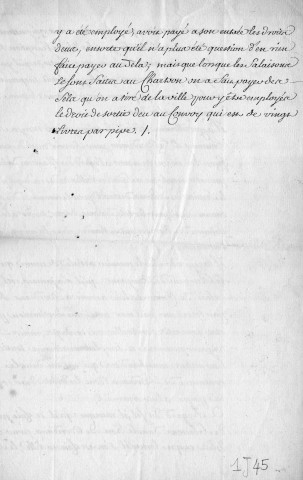 y a été employé, avoit payé a son entrée les droits
deus, ensorte qu'il n'a plus été question d'en rien
faire payer au dela; mais que lorsque les Salaisons
se sont faites au Chartron on a fait payer du
Sel qu'on a tiré de la ville pour y être employé
le droit de sortie deu au Convoy qui est de vingt
livres par pipe /.
1J45